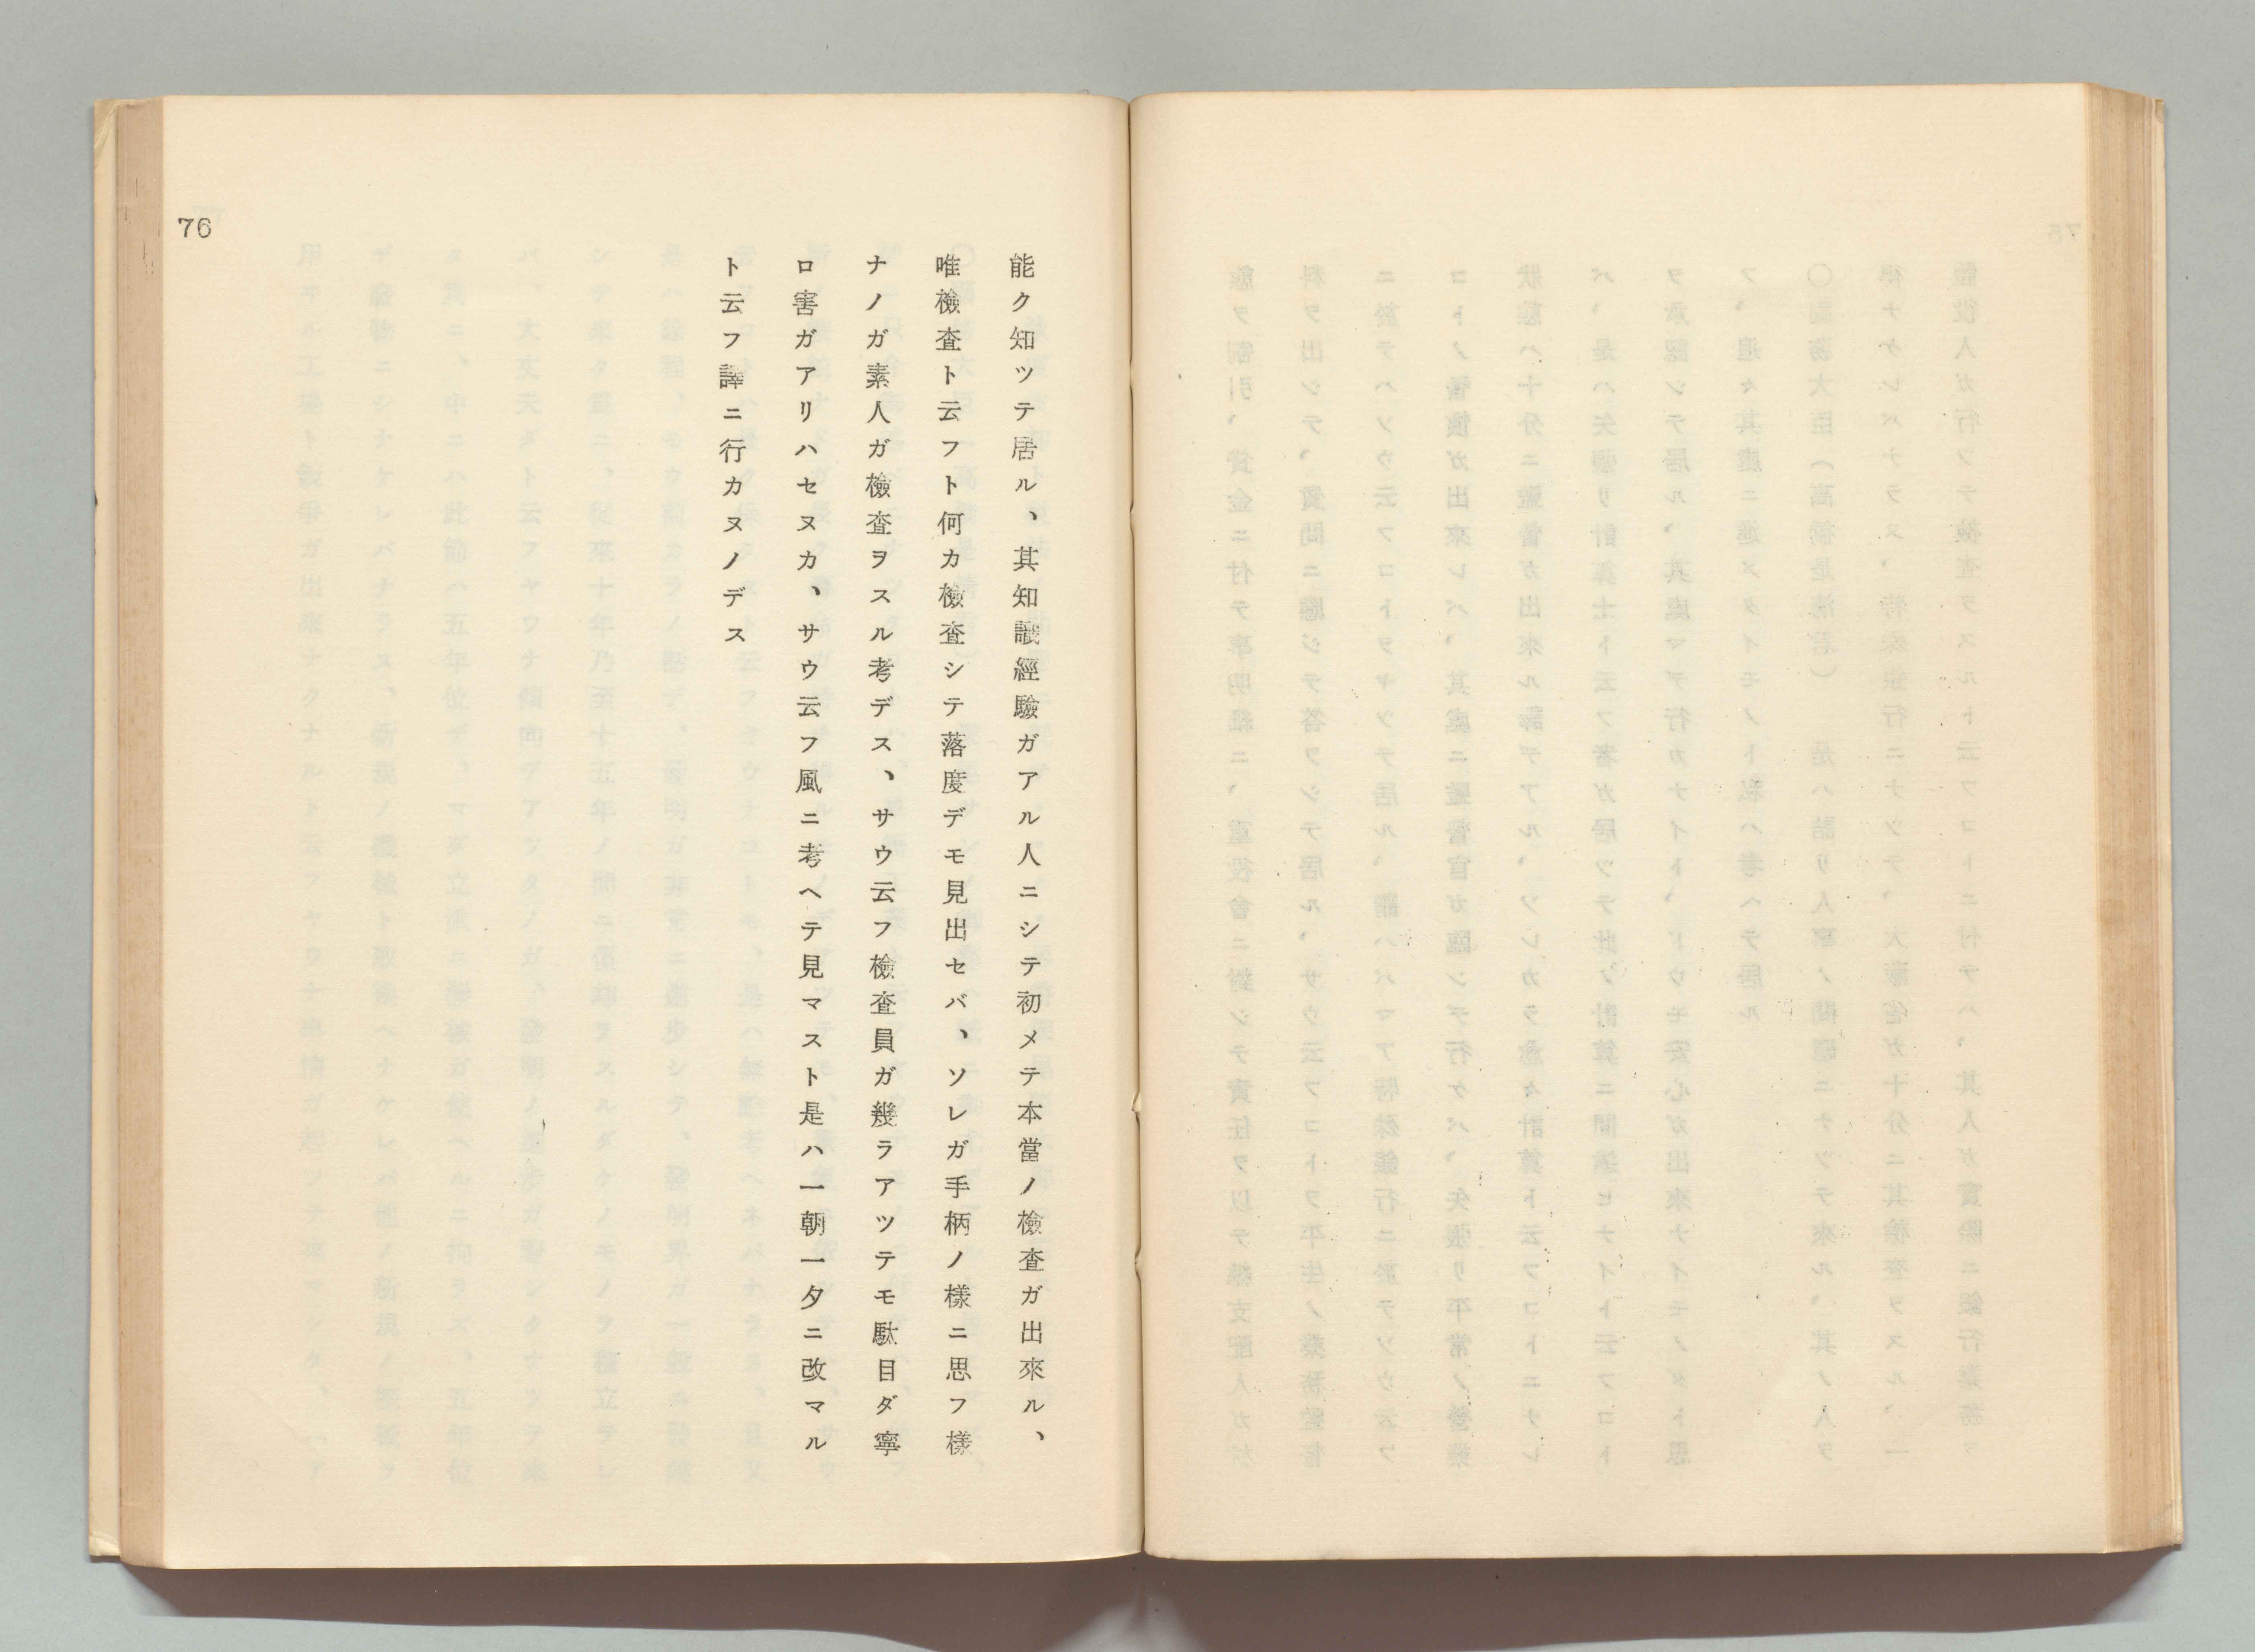 能ク知ツテ居ル、其知識經驗ガアル人ニシテ初メテ本當ノ檢査ガ出來ル、
唯檢査ト云フト何カ檢査シテ落度デモ見出セバ、ソレガ手柄ノ樣ニ思フ樣
ナノガ素人ガ檢査ヲスル考デス、サウ云フ檢査員ガ幾ラアツテモ駄目ダ寧
ロ害ガアリハセヌカ、サウ云フ風ニ考ヘテ見マスト是ハ一朝一夕ニ改マル
ト云フ譯ニ行カヌノデス
76